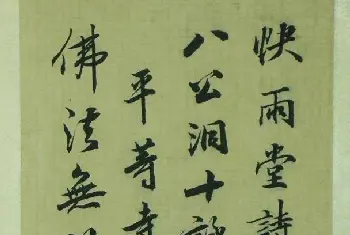 快雨堂詩
八公洞十
平等寺
佛法無